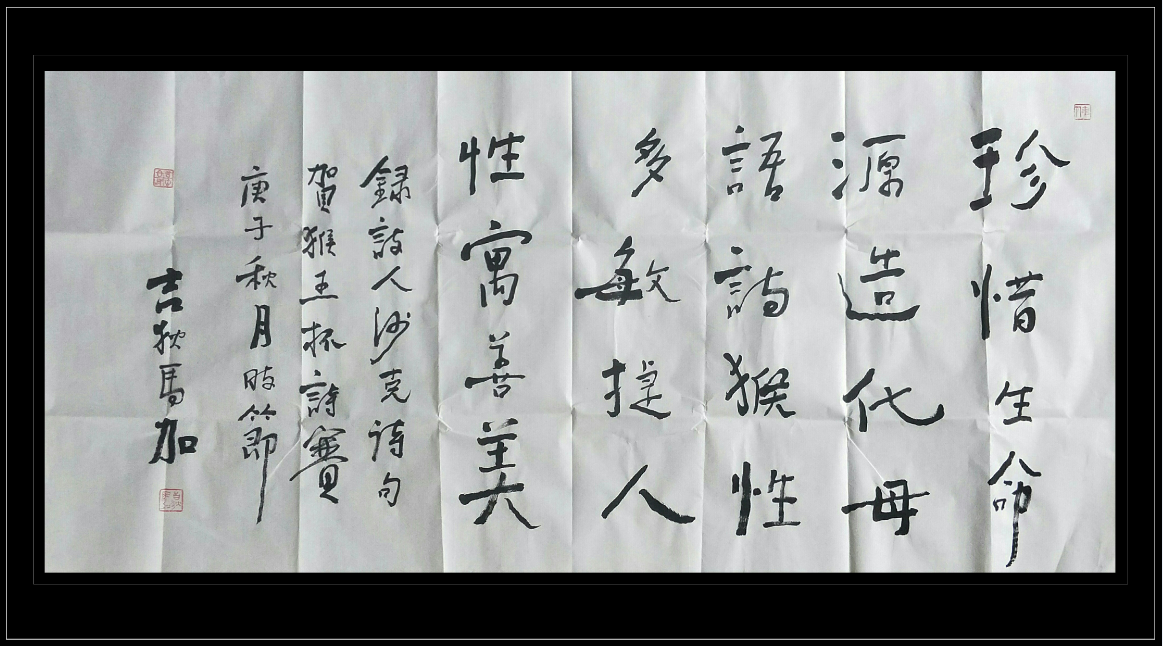 珍惜生命
源造代母
語詩猴性
多敏捷人
性寓善美
録詩人沙克诗句
賀猴王杯詩賽
庚子秋月時節
吉狄馬加